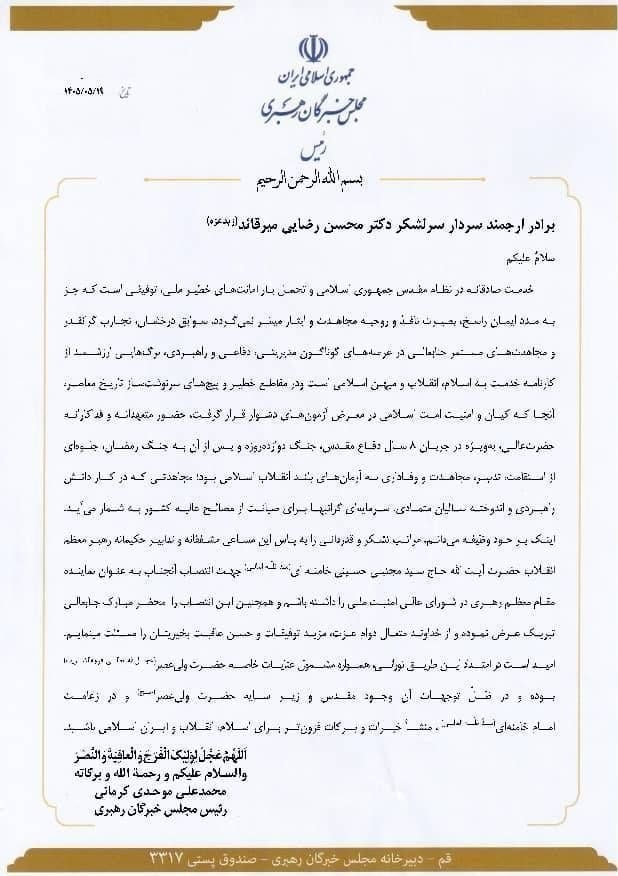 جمهوری اسلامی ایران
مجلس خبرگان رهبری
رئیس
تاریخ: ۱۴۰۵/۰۵/۱۹
بسم الله الرحمن الرحیم
برادر ارجمند سردار سرلشکر دکتر محسن رضایی میرقائد (زیدعزه)
سلامٌ علیکم
خدمت صادقانه در نظام مقدس جمهوری اسلامی و تحمل بار امانت‌های خطیر ملی، توفیقی است که جز
به مدد ایمان راسخ، بصیرت نافذ و روحیه مجاهدت و ایثار میسر نمی‌گردد. سوابق درخشان، تجارب گرانقدر
و مجاهدت‌های مستمر جنابعالی در عرصه‌های گوناگون مدیریتی، دفاعی و راهبردی، برگ‌هایی ارزشمند از
کارنامه خدمت به اسلام، انقلاب و میهن اسلامی است ودر مقاطع خطیر و پیچ‌های سرنوشت‌ساز تاریخ معاصر،
آنجا که کیان و امنیت امت اسلامی در معرض آزمون‌های دشوار قرار گرفت، حضور متعهدانه و فداکارانه
حضرت‌عالی، به‌ویژه در جریان ۸ سال دفاع مقدس، جنگ دوازده‌روزه و پس از آن به جنگ رمضان، جلوه‌ای
از استقامت، تدبیر، مجاهدت و وفاداری به آرمان‌های بلند انقلاب اسلامی بود؛ مجاهدتی که در کنار دانش
راهبردی و اندوخته سالیان متمادی، سرمایه‌ای گرانبها برای صیانت از مصالح عالیه کشور به شمار می‌آید.
اینک بر خود وظیفه می‌دانم، مراتب تشکر و قدردانی را به پاس این مساعی مشفقانه و تدابیر حکیمانه رهبر معظم
انقلاب حضرت آیت الله حاج سید مجتبی حسینی خامنه ای جهت انتصاب آنجناب به عنوان نماینده
مقام معظم رهبری در شورای عالی امنیت ملی را داشته باشم و همچنین این انتصاب را محضر مبارک جنابعالی
تبریک عرض نموده و از خداوند متعال دوام عزت، مزید توفیقات و حسن عاقبت بخیریتان را مسئلت مینمایم.
امید است در امتداد این طریق نورانی، همواره مشمول عنایات خاصه حضرت ولی‌عصر
بوده و در ظلّ توجهات آن وجود مقدس و زیر سایه حضرت ولی‌عصر و در زعامت
امام خامنه‌ای ، منشأ خیرات و برکات فزون‌تر برای اسلام، انقلاب و ایران اسلامی باشید.
اَللّهُمَّ عَجِّل لِوَلیِّکَ الفَرَج وَالعافِیَةَ وَالنَّصرَ
والسلام علیکم و رحمة الله و برکاته
محمدعلی موحدی کرمانی
رئیس مجلس خبرگان رهبری
قم - دبیرخانه مجلس خبرگان رهبری - صندوق پستی ۳۳۱۷